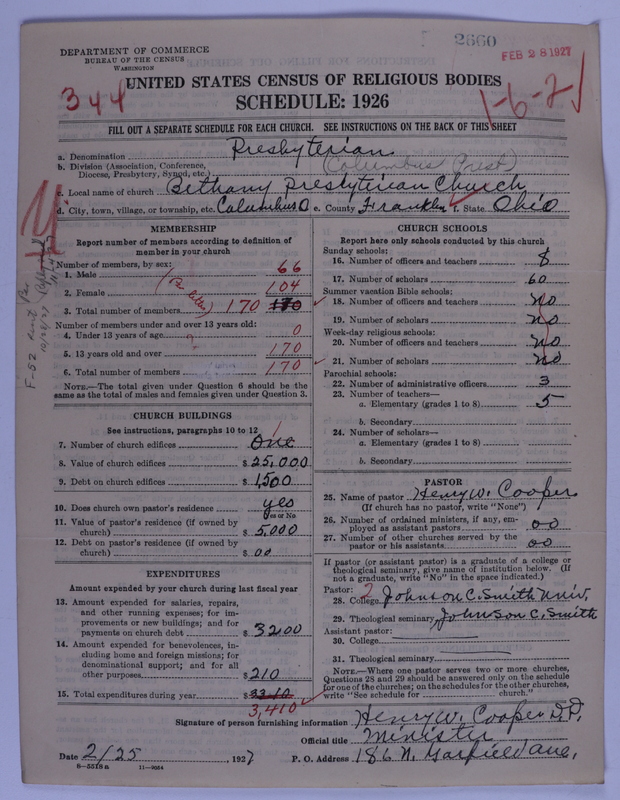 2660
FEB 28 1927
DEPARTMENT OF COMMERCE
BUREAU OF THE CENSUS
WASHINGTON
344
UNITED STATES CENSUS OF RELIGIOUS BODIES
SCHEDULE: 1926
1-6-2
FILL OUT A SEPARATE SCHEDULE FOR EACH CHURCH. SEE INSTRUCTIONS ON THE BACK OF THIS SHEET
a. Denomination Presbyterian
b. Division (Association, Conference, Diocese, Presbytery, Synod, etc.) (Columbus Presb)
c. Local name of church Bethany Presbyterian Church
d. City, town, village, or township, etc. Columbus O e. County Franklin f. State Ohio
MEMBERSHIP
Report number of members according to definition of
member in your church
Number of members, by sex:
1. Male 66
2. Female 104
3. Total number of members (Per letter) 170 170
Number of members under and over 13 years old:
4. Under 13 years of age 0
5. 13 years old and over 170
6. Total number of members 170
NOTE.—The total given under Question 6 should be the
same as the total of males and females given under Question 3.
CHURCH BUILDINGS
See instructions, paragraphs 10 to 12
7. Number of church edifices One
8. Value of church edifices $ 25,000
9. Debt on church edifices $ 1,500
10. Does church own pastor's residence? yes
Yes or No
11. Value of pastor's residence (if owned by
church) $ 5,000
12. Debt on pastor's residence (if owned by
church) $ 00
EXPENDITURES
Amount expended by your church during last fiscal year
13. Amount expended for salaries, repairs,
and other running expenses; for im-
provements or new buildings; and for
payments on church debt $ 3200
14. Amount expended for benevolences, in-
cluding home and foreign missions; for
denominational support; and for all
other purposes $ 210
15. Total expenditures during year $ 3310
3,410
CHURCH SCHOOLS
Report here only schools conducted by this church
Sunday schools:
16. Number of officers and teachers 8
17. Number of scholars 60
Summer vacation Bible schools:
18. Number of officers and teachers no
19. Number of scholars no
Week-day religious schools:
20. Number of officers and teachers no
21. Number of scholars no
Parochial schools:
22. Number of administrative officers 3
23. Number of teachers—
a. Elementary (grades 1 to 8) 5
b. Secondary
24. Number of scholars—
a. Elementary (grades 1 to 8)
b. Secondary
PASTOR
25. Name of pastor Henry W. Cooper
(If church has no pastor, write "None")
26. Number of ordained ministers, if any, em-
ployed as assistant pastors 00
27. Number of other churches served by the
pastor or his assistants 00
If pastor (or assistant pastor) is a graduate of a college or
theological seminary, give name of institution below. (If
not a graduate, write "No" in the space indicated.)
Pastor:
28. College Johnson C. Smith Univ.
29. Theological seminary Johnson C. Smith
Assistant pastor:
30. College
31. Theological seminary
NOTE.—Where one pastor serves two or more churches,
Questions 28 and 29 should be answered only on the schedule
for one of the churches; on the schedules for the other churches,
write "See schedule for church."
Signature of person furnishing information Henry W. Cooper D.D.
Official title Minister
Date 2/25, 1927 P. O. Address 186 N. Garfield Ave.
8—5518a 11—9054